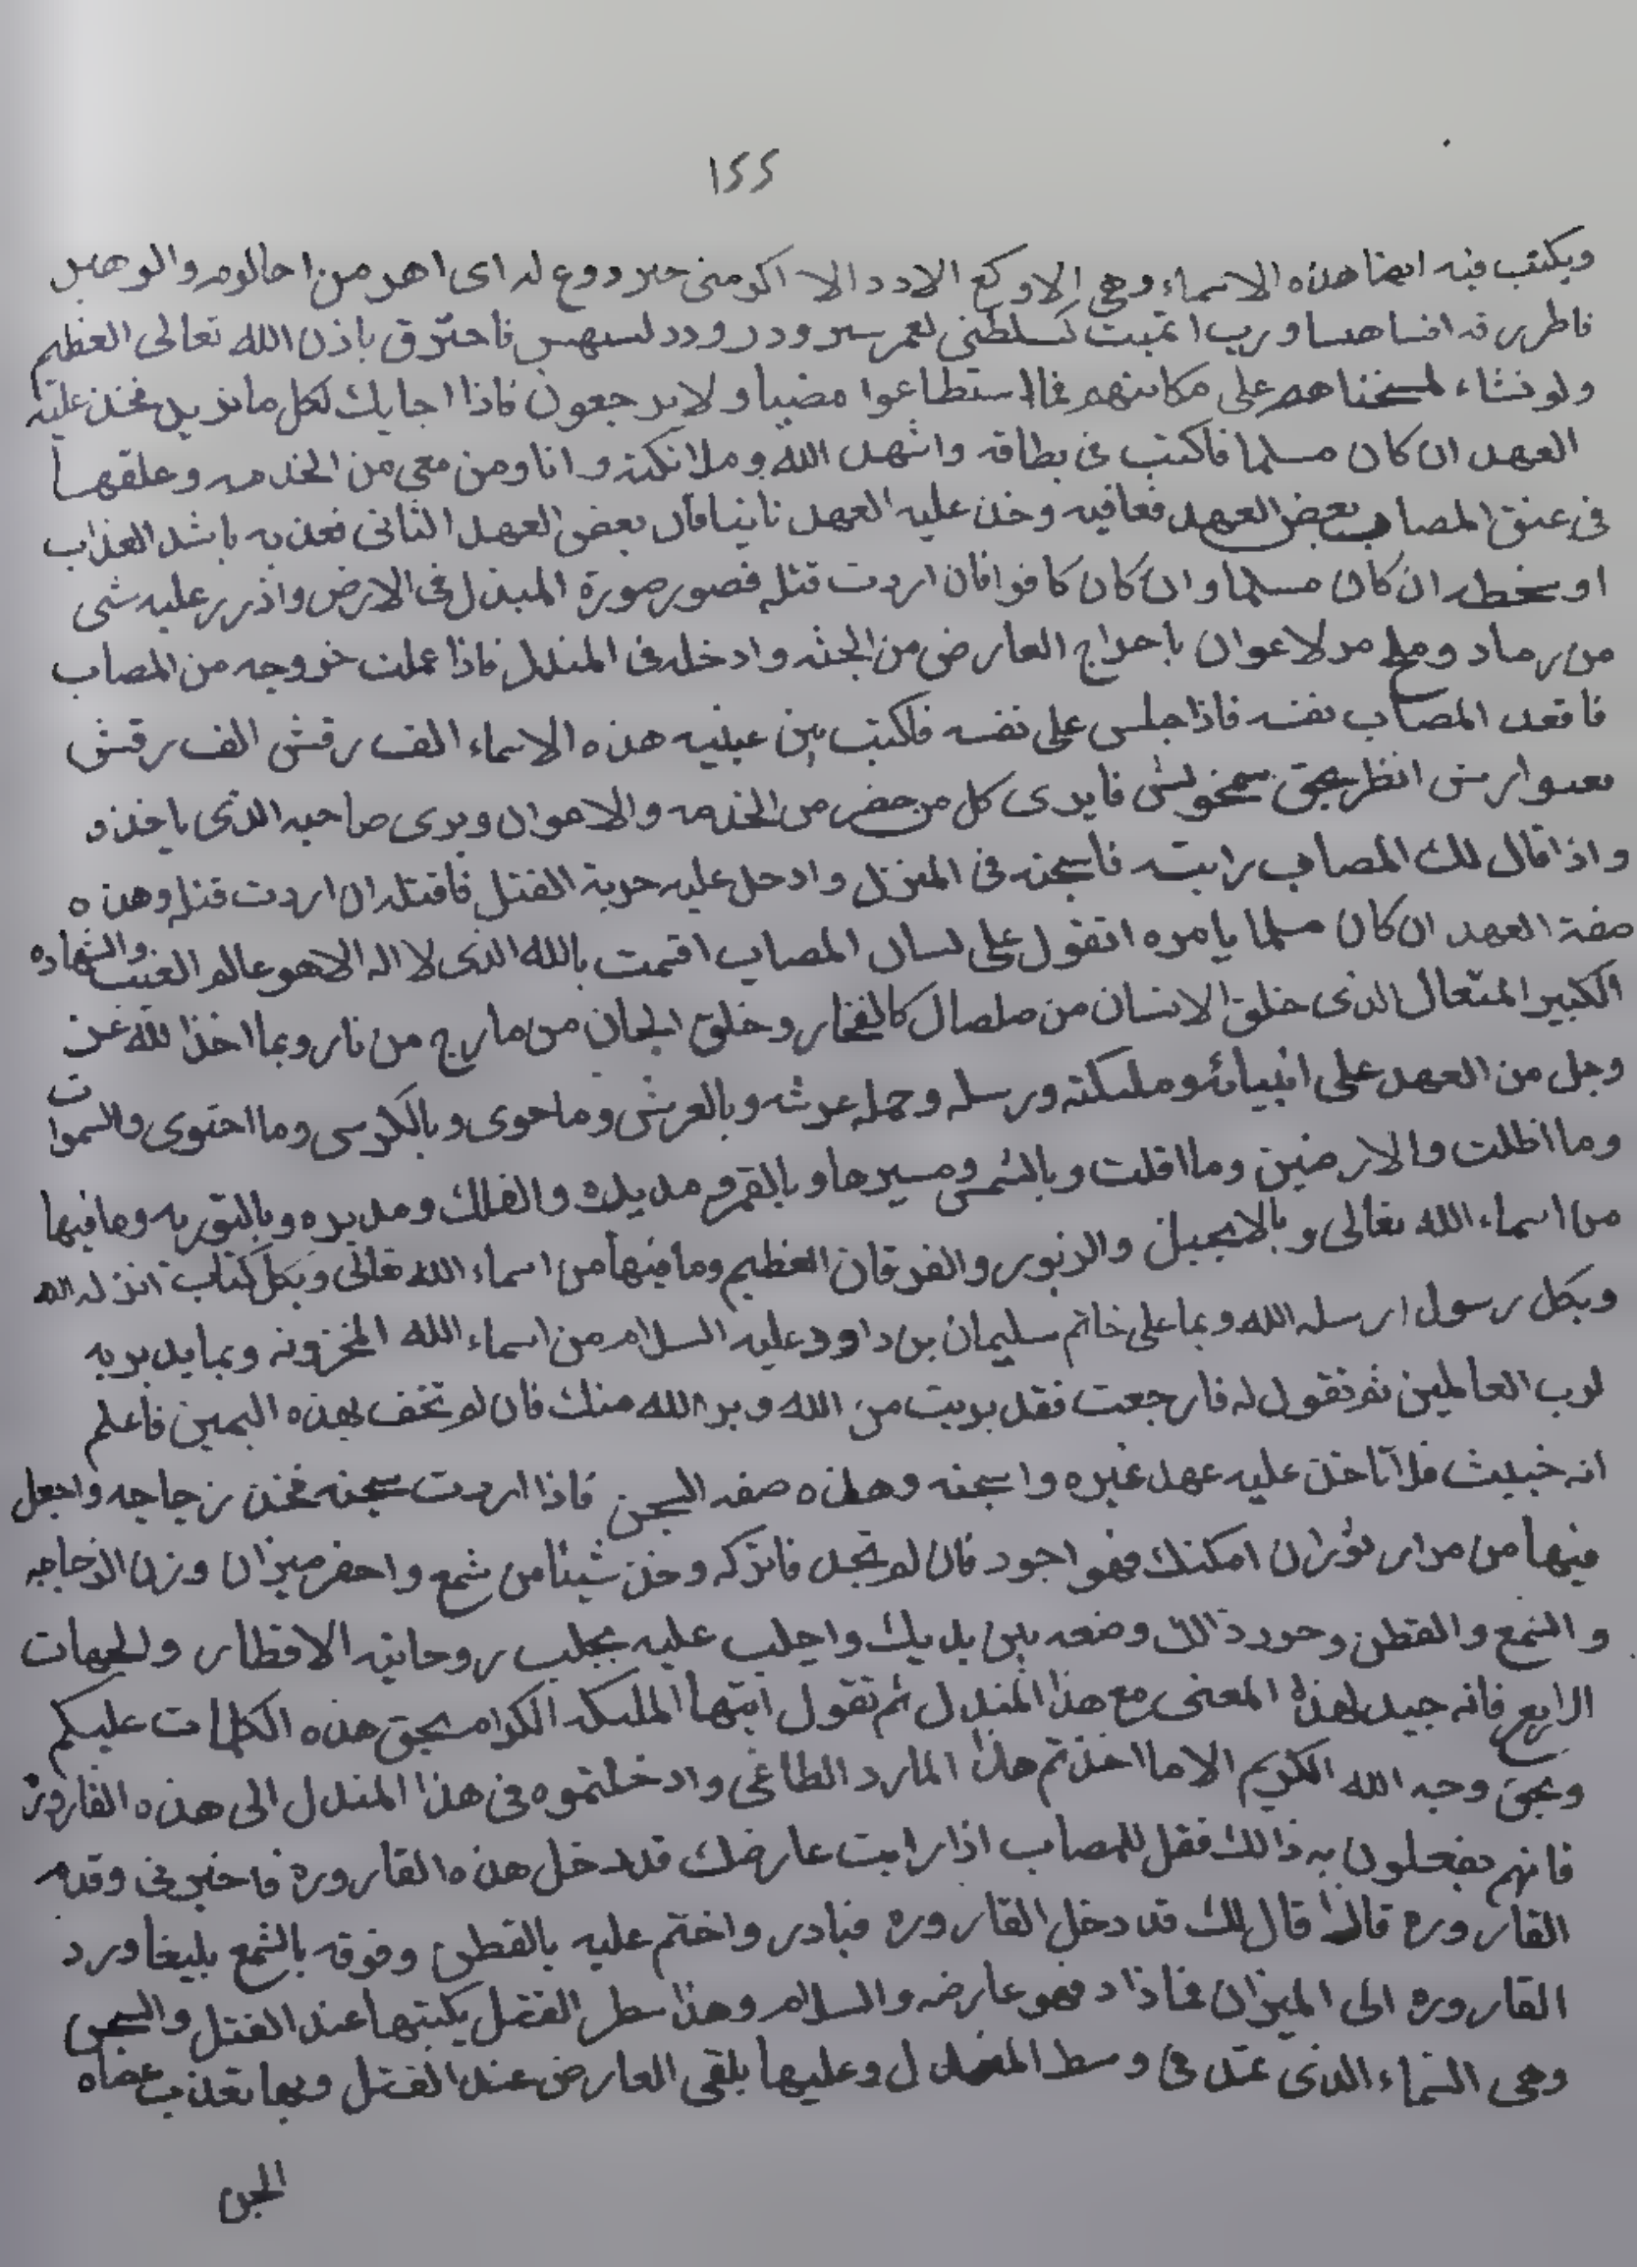 ١٢٢
ويكتب فيه ايضا هذه الاسماء وهى الاوكع الادد الا اكومنى حىر دوع له اى اهر من احالوم والوهىل
فاحترق باذن الله تعالى العظيم
ولو نشاء لمسخناهم على مكانتهم فما استطاعوا مضيا ولا يرجعون فاذا اجابك لكل ما تريد فخذ عليه
العهد ان كان مسلما فاكتب فى بطاقه واشهد الله وملائكته وانا ومن معى من الخدمه وعلقها
فى عنق المصاب بعض العهد فعافيه وخذ عليه العهد ثانيا فان بعض العهد الثانى فعذبه باشد العذاب
او سخطه ان كان مسلما وان كان كافرا فان اردت قتله فصور صورة المندل فى الارض واذرر عليه شى
من رماد وملح مر لاعوان باخراج العارض من الجثه وادخله فى المندل فاذا عملت خروجه من المصاب
فاقعد المصاب نفسه فاذا جلس على نفسه فلكتب بين عينيه هذه الاسماء الف رقش الف رقش
انظر بحق فايرى كل من حضر من الخدمه والاعوان ويرى صاحبه الذى ياخذه
واذا قال لك المصاب رايته فاسجنه فى المنزل وادخل عليه حربة القتل فاقتله ان اردت قتله وهذه
صفة العهد ان كان مسلما يامره اتقول على لسان المصاب اقسمت بالله الذى لا اله الا هو عالم الغيب والشهاده
الكبير المتعال الذى خلق الانسان من صلصال كالفخار وخلق الجان من مارج من نار وبما اخذ الله عز
وجل من العهد على انبيائه وملىكته ورسله وحمله عرشه وبالعرش وما حوى وبالكرسى وما احتوى والسموات
وما اظلت والارضين وما اقلت وبالشمس ومسيرها وبالقمر و مديده والفلك ومديره وبالتوريه وما فيها
من اسماء الله تعالى وبالانجيل والزبور والفرقان العظيم وما فيها من اسماء الله تعالى وبكل كتاب انزله الله
وبكل رسول ارسله الله وبما على خاتم سليمان بن داوود عليه السلام من اسماء الله المخزونه وبما يدبر به
لرب العالمين ثم تقول له فارجعت فقد بريت من الله وبرا الله منك فان لم تخف بهذه اليمين فاعلم
انه خبيث فلا تاخذ عليه عهد غيره واسجنه وهذه صفه السجن فاذا اردت سجنه فخذ زجاجه واجعل
فيها من مرار ثور ان امكنك فهو اجود فان لم تجد فاتركه وخذ شيئا من شمع واحفر ميزان وزن الزجاجه
والشمع والقطن وحور ذالك وضعه بين يديك واجلب عليه بجلب روحانيه الاقطار والجهات
الاربع فانه جيد لهذا المعنى مع هذا المندل ثم تقول ايتها الملىكه الكرام بحق هذه الكلمات عليكم
وبحق وجه الله الكريم الا ما اخذتم هذا المارد الطاغى وادخلتموه فى هذا المندل الى هذه القاروره
فانهم يفعلون به ذالك فقل للمصاب اذا رايت عارضك قد دخل هذه القاروره فاخبرنى وقدم
القاروره فاذا قال لك قد دخل القاروره فبادر واختم عليه بالقطن وفوقه بالشمع بليغا ورد
القاروره الى الميزان فما ذاد فهو عارضه والسلام وهذا سطر القتل يكتبها عند القتل والسجن
وهى السماء الذى عمد فى وسط المندل وعليها يلقى العارض عند القتل وبها تعذب عصاه
الجن